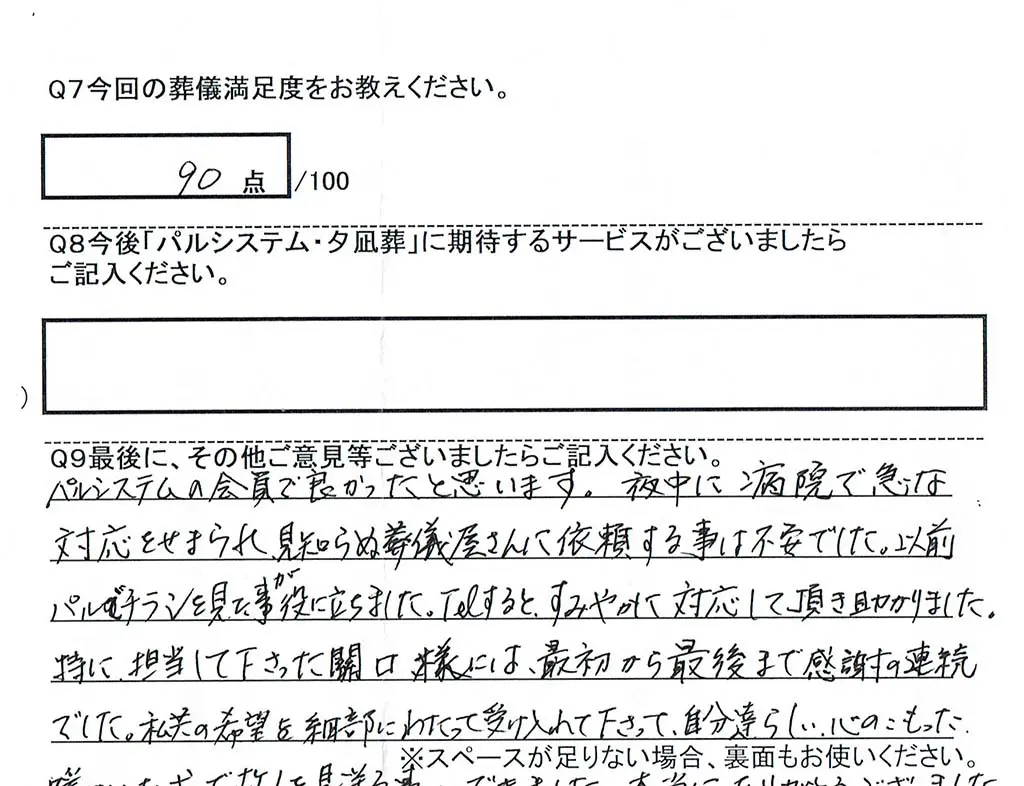 Q7今回の葬儀満足度をお教えください。
90 点 /100
Q8今後「パルシステム・夕凪葬」に期待するサービスがございましたら
ご記入ください。
)
Q9最後に、その他ご意見等ございましたらご記入ください。
パルシステムの会員で良かったと思います。夜中に病院で急な
対応をせまられ、見知らぬ葬儀屋さんに依頼する事は不安でした。以前
パルでチラシを見た事が役に立ちました。Telすると、すみやかに対応して頂き助かりました。
特に、担当して下さった関口様には、最初から最後まで感謝の連続
でした。私共の希望を細部にわたって受け入れて下さって、自分達らしい、心のこもった
※スペースが足りない場合、裏面もお使いください。
できました。本当にありがとうございました